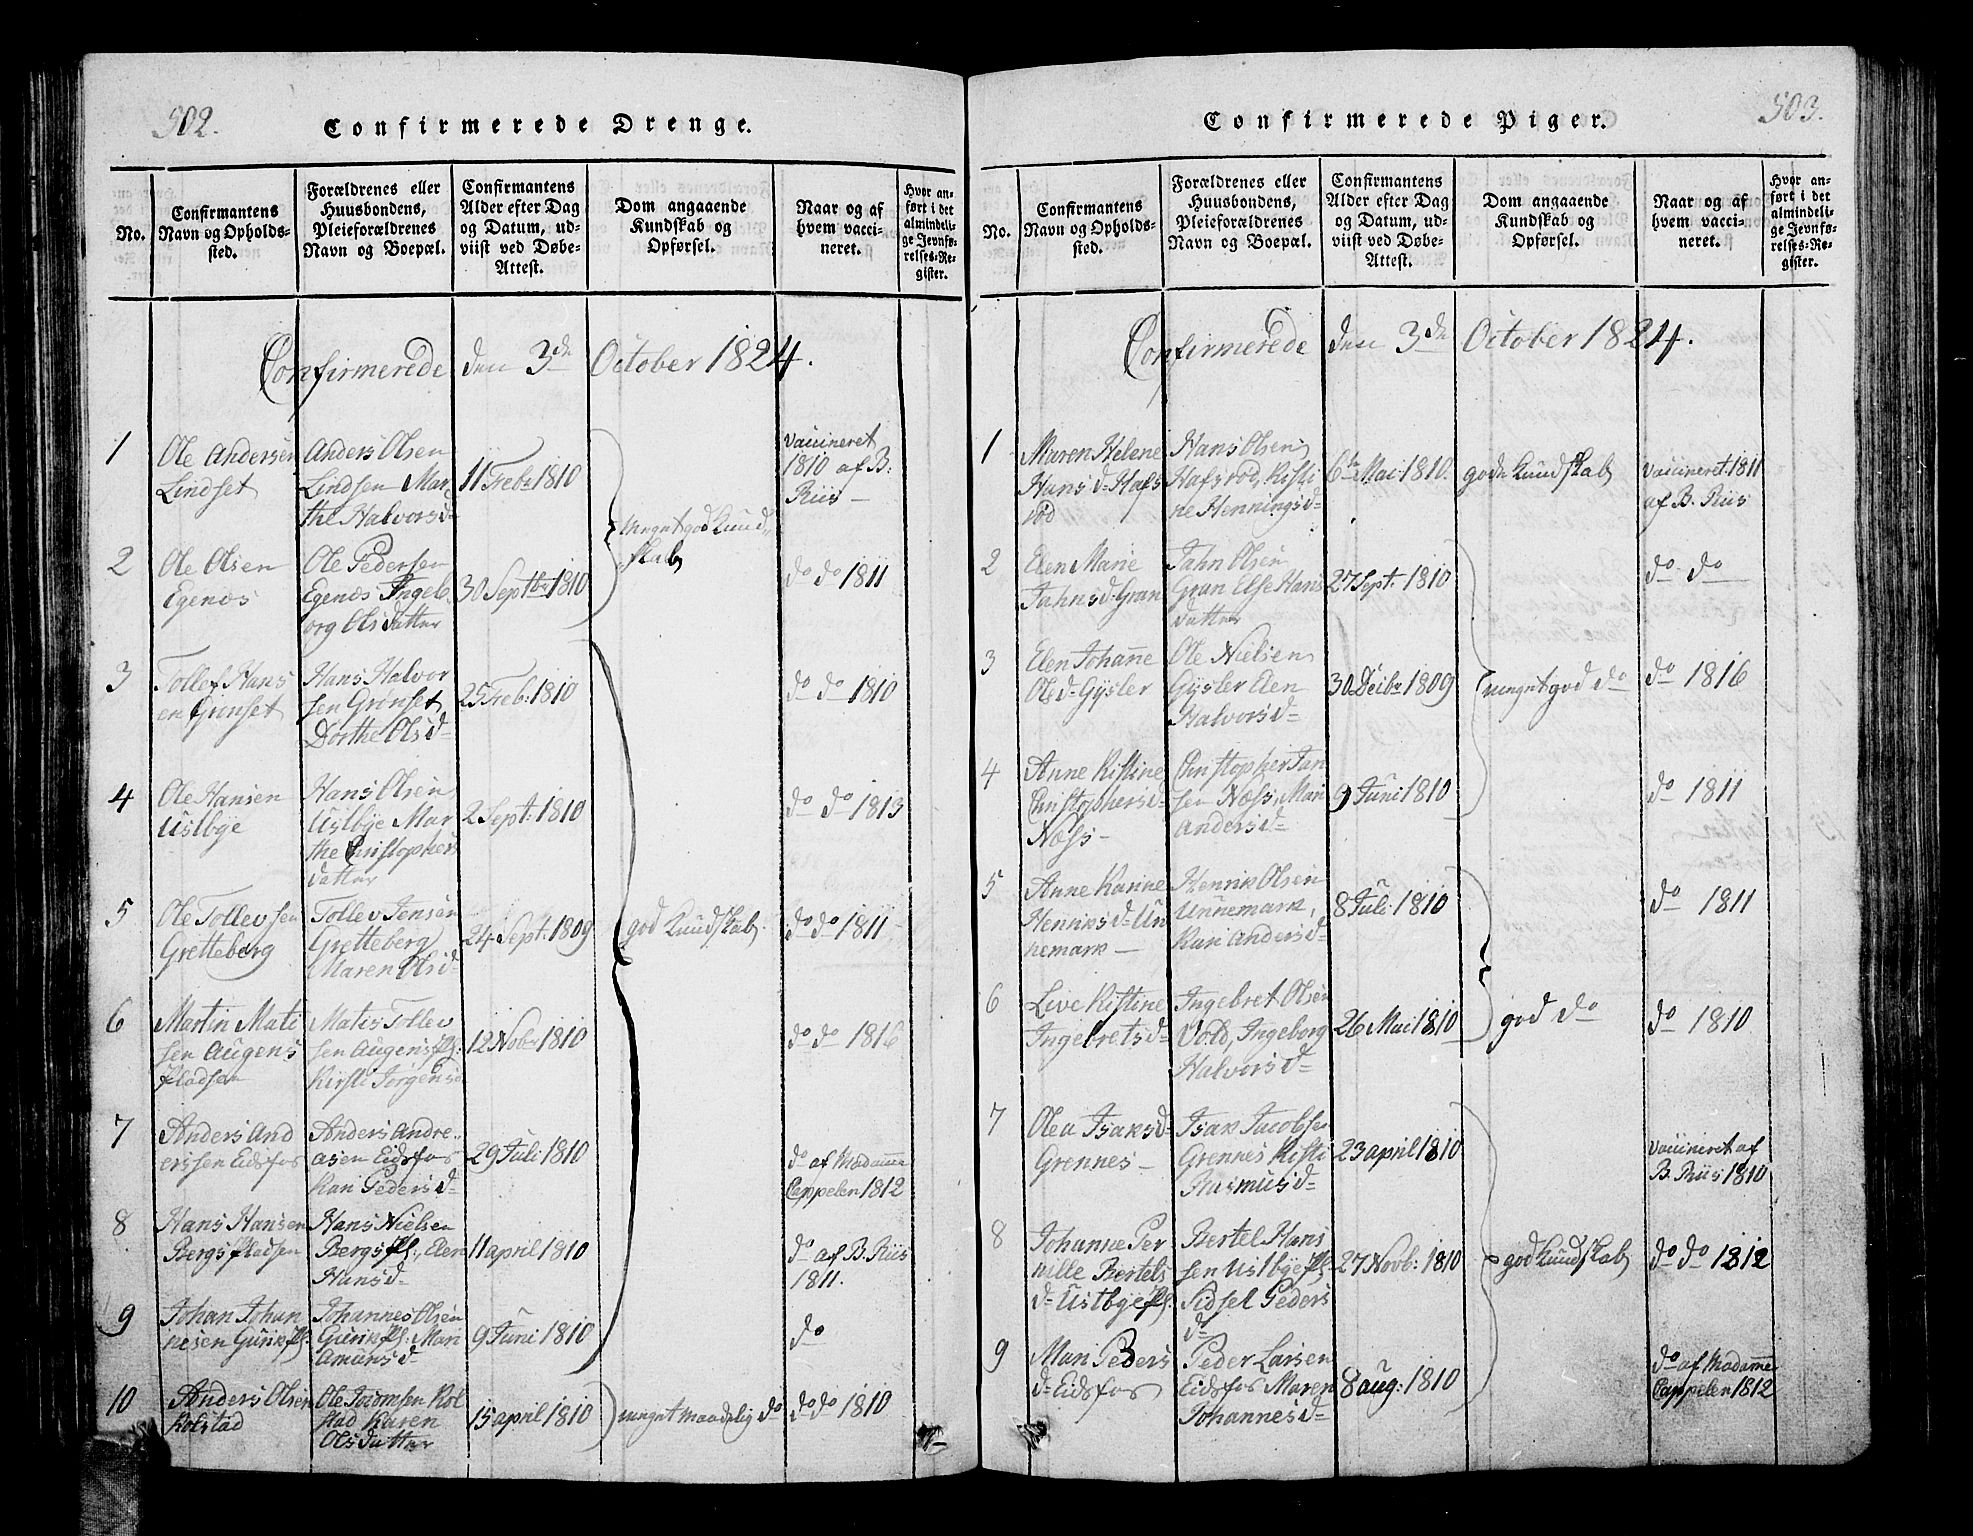 502.
Confirmerede Drenge.
No.
Confirmantens
Navn og Opholds-
sted.
Forældrenes eller
Huusbondens,
Pleieforældrenes
Navn og Boepæl.
Confirmantens
Alder efter Dag
og Datum, ud-
viist ved Døbe-
Attest.
Dom angaaende
Kundskab og
Opførsel.
Naar og af
hvem vacci-
neret.
Hvor an-
ført i det
almindeli-
ge Jevnfø-
relses-Re-
gister.
Confirmerede den 3de October 1824.
1
Ole Andersen
Lindset
Anders Olsen
Lindsen Mar
the Halvorsd
11 Febr 1810
meget god Kund
skab
vaccineret
1810 af B:
Riis
2
Ole Olsen
Egenæs
Ole Pedersen
Egenæs Ingeb
org Olsdatter
30 Septbr 1810
do do 1811
3
Tollef Hans
en Grønset
Hans Halvor
sen Grønset
Dorthe Olsd
25 Feb: 1810
do do 1810
4
Ole Hansen
Ustbye
Hans Olsen
Ustbye Mar
the Christophers
datter
2 Sept: 1810
do do 1813
5
Ole Tollevsen
Gretteberg
Tollev Jensen
Gretteberg
Maren Olsd
24 Sept: 1809
god Kundskab
do do 1811
6
Martin Mati
sen Augens
pladsen
Matis Tollev
sen Augens pl:
Kirsti Jørgensd
12 Nobr 1810
do do 1816
7
Anders And
erssen Eidsfos
Anders Andre
asen Eidsfos
Kari Pedersd
29 Juli 1810
do af Madame
Cappelen 1812
8
Hans Hansen
Bergs pladsen
Hans Nielsen
Bergs pl:, Elen
Hansd
11 april 1810
do af B. Riis
1811.
9
Johan Johan
nesen Gurik pl:
Johannes Olsen
Gurik pl: Mari
Amunsd
9 Juni 1810
do
10
Anders Olsen
Kolstad
Ole Kol
stad Karen
Olsdatter
15 april 1810
meget maadelig do
do do 1810
503.
Confirmerede Piger.
No.
Confirmantens
Navn og Opholds-
sted.
Forældrenes eller
Huusbondens,
Pleieforældrenes
Navn og Boepæl.
Confirmantens
Alder efter Dag
og Datum, ud-
viist ved Døbe-
Attest.
Dom angaaende
Kundskab og
Opførsel.
Naar og af
hvem vacci-
neret.
Hvor an-
ført i det
almindeli-
ge Jevnfø-
relses-Re-
gister.
Confirmerede den 3de October 1824.
1
Maren Helene
Hans d Hafs
rød
Hans Olsen
Hafsrød, Kisti
ne Henningsd
6te Mai 1810.
gode Kundskab
vaccineret 1811
af B. Riis
2
Elen Marie
Jahnsd Gran
Jahn Olsen
Gran Else Hans
datter
27 Sept: 1810
do do
3
Elen Johanne
Olsd Gysler
Ole Nielsen
Gysler Elen
Halvorsd
30 Decbr 1809
meget god do
do 1816
4
Anne Kistine
Christophersd
Næss
Christopher Jan
sen Næss, Mari
Andersd
9 Juni 1810
do 1811
5
Anne Karine
Henriksd Un
nemark
Henrik Olsen
Unnemark,
Kari Andersd
8 Juli 1810
do 1811
6
Live Kistine
Ingebretsd
Ingebret Olsen
Vold, Ingeborg
Halvorsd
26 Mai 1810
god do
do 1810
7
Olea Isaksd
Grennes
Isak Jacobsen
Grennes Kisti
Rasmusd
23 april 1810
vaccineret af
B. Riis 1810
8
Johanne Per
nille Bertels
d Ustbye pl.
Bertel Hans
sen Ustbye pl
Sidsel Peders
d
27 Novb: 1810
god Kundskab
do do 1812
9
Mari Peders
d Eidsfos
Peder Larsen
Eidsfos Maren
Johannesd
8 aug: 1810
do af Madame
Cappelen 1812